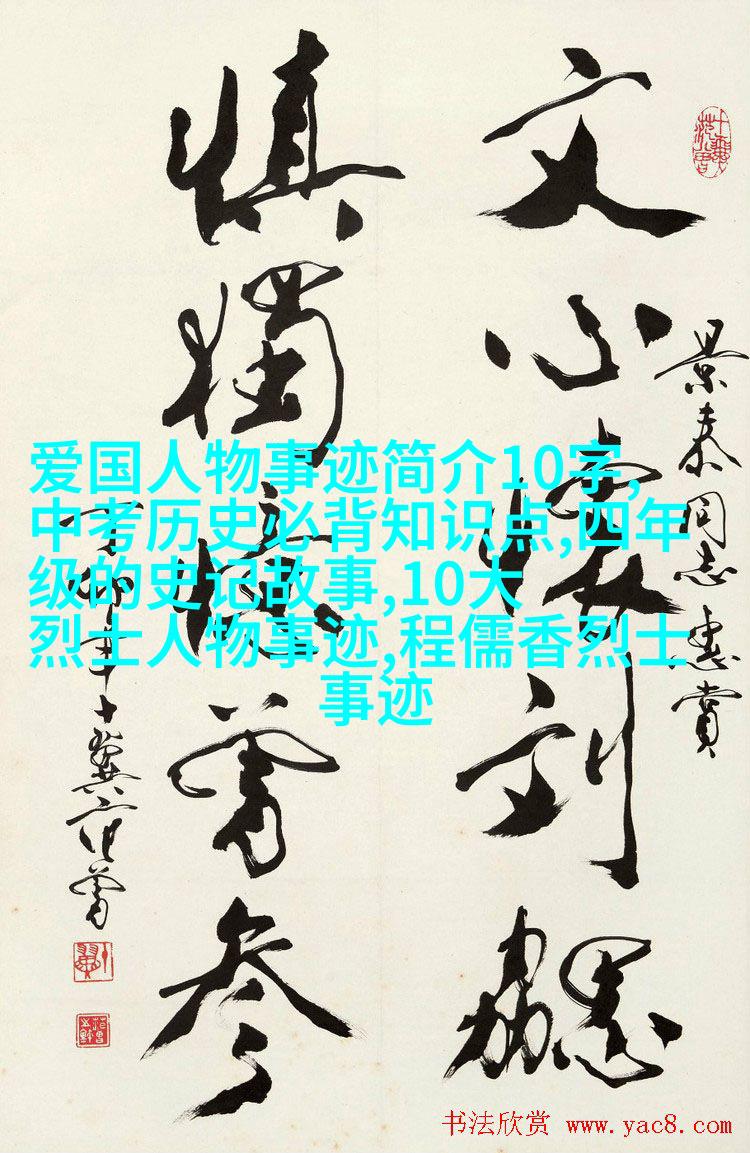 景泰同志惠賞
文心懷刘勰
慎獨憶曾参
丁卯年十翼范曾
爱国人物事迹简介10字,
中考历史必背知识点,四年
级的史记故事,10大
烈士人物事迹,程儒香烈士
事迹
书法欣赏 www.yac8.com